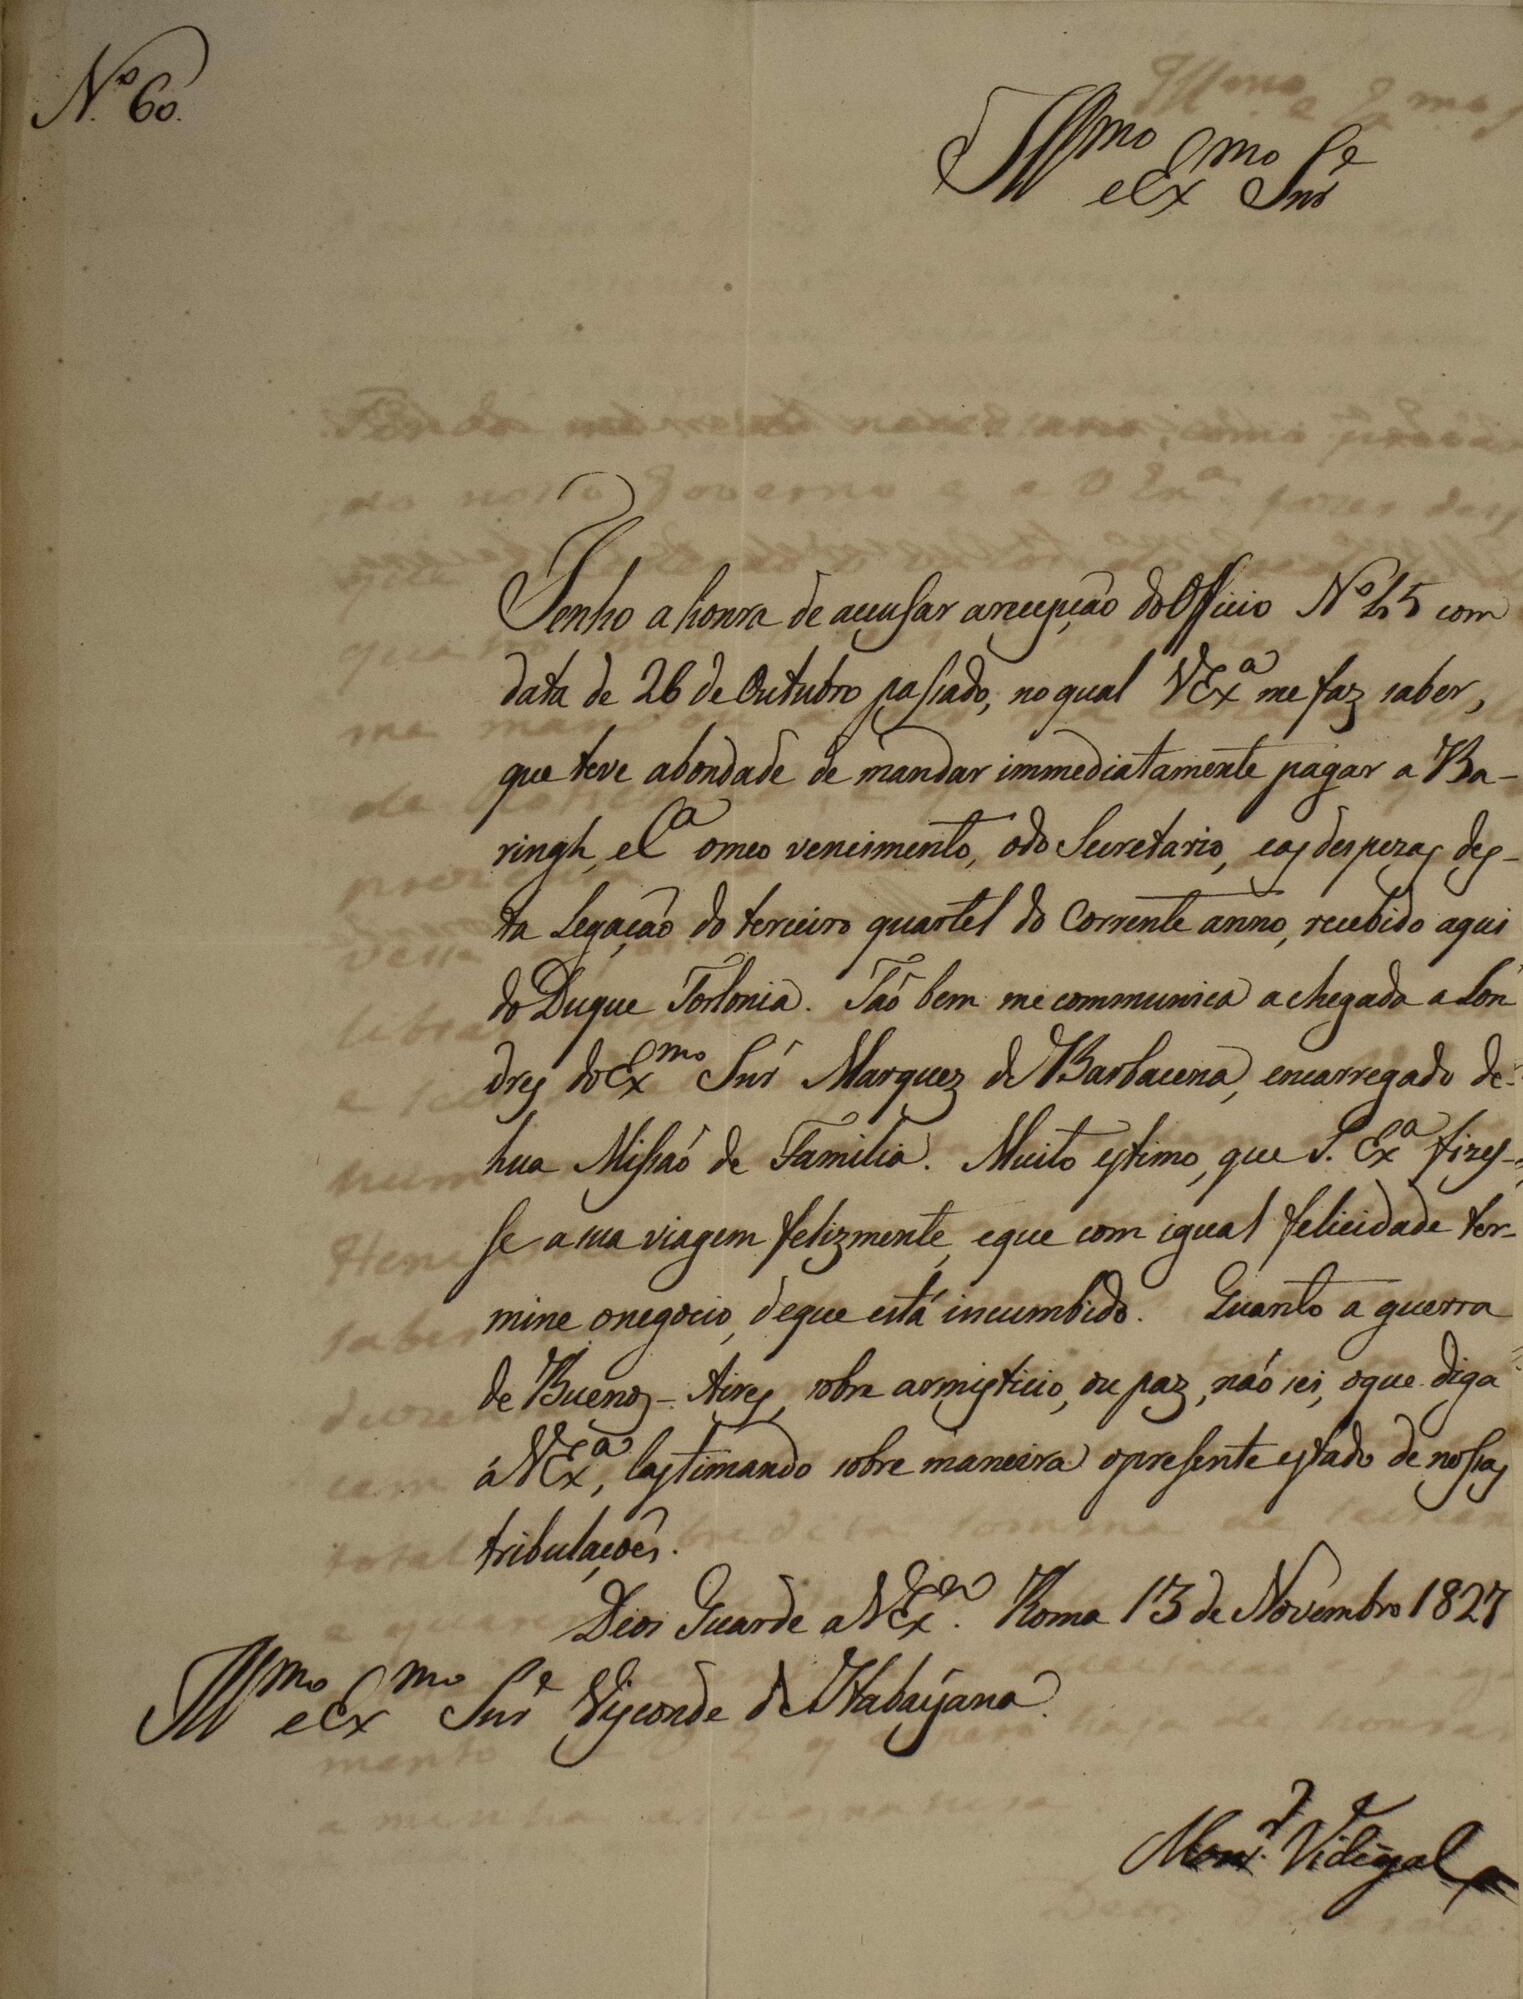 Nº 60.
Illmo e Exmo Snr
Tenho a honra de accusar a recepção do Officio Nº 45 com
data de 26 de Outubro passado, no qual VExª me faz saber,
que teve a bondade de mandar immediatamente pagar a Ba-
ringh, e Cª o meo vencimento, o do Secretario, e as despezas des-
ta Legação do terceiro quartel do Corrente anno, recebido aqui
do Duque Torlonia. Tão bem me communica a chegada a Lon
dres do Exmo Snr Marquez de Barbacena, encarregado de
hua Missão de Familia. Muito estimo, que S. Exª fizes-
se a sua viagem felizmente, e que com igual felicidade ter-
mine o negocio, de que está incumbido. Quanto a guerra
de Buenos-Aires, sobre armisticio, ou paz, não sei, o que diga
á VExª, lastimando sobre maneira o presente estado de nossas
tribulações.
Deos Guarde a VExª. Roma 13 de Novembro 1827
Illmo e Exmo Snr Visconde de Itabayana.
Monsr Vidigal